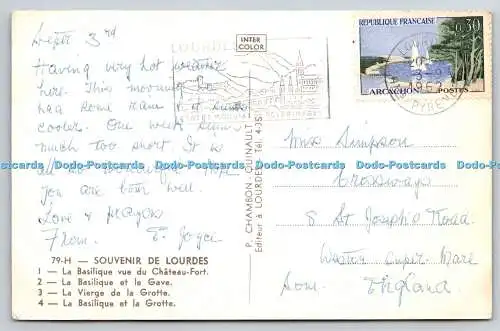 Sept 3rd
Having very hot weather
here. This morning we
had some rain & it seems
cooler. One week seems
much too short. It is
all so wonderful. Hope
you are both well.
Love & prayers
From
79-H — SOUVENIR DE LOURDES
1 — La Basilique vue du Château-Fort.
2 — La Basilique et le Gave.
3 — La Vierge de la Grotte.
4 — La Basilique et la Grotte.
INTER
COLOR
LOURDES
P. CHAMBON-QUINAULT
Editeur à LOURDES Tél. 4-35
RÉPUBLIQUE FRANÇAISE
0,30
ARCACHON POSTES
3-9
1962
Miss Simpson
Crossways
8 St Joseph's Road
Weston Super Mare
Som. England
Dodo-Postcards
www.Dodo-Postcards.com